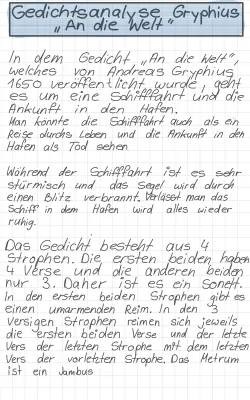 Gedichtsanalyse Gryphius
„An die Welt"
In dem Gedicht „An die Welt",
welches von Andreas Gryphius
1650 veröffentlicht wurde, geht
es um eine Schifffahrt und die
Ankunft in den Hafen.
Man könnte die Schifffahrt auch als ein
Reise durchs Leben und die Ankunft in den
Hafen als Tod sehen
Während der Schifffahrt ist es sehr
stürmisch und das Segel wird durch
einen Blitz verbrannt. Verlässt man das
Schiff in dem Hafen wird alles wieder
ruhig.
Das Gedicht besteht aus 4
Strophen. Die ersten beiden haben
4 Verse und die anderen beiden
nur 3. Daher ist es ein Sonett.
In den ersten beiden Strophen gibt es
einen umarmenden Reim. In den 3
Versigen Strophen reimen sich jeweils
die ersten beiden Verse und der letzte
Vers der letzten Strophe mit dem letzten
Vers der vorletzten Strophe. Das Metrum
ist ein Jambus